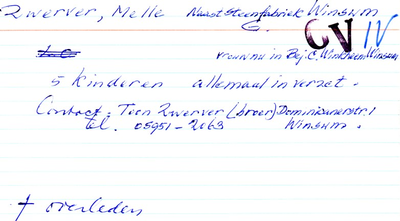 Zwerver, Melle Naast Steenfabriek Winsum
G.
CV IV
vrouw nu in Bej. C. Winkheem Winsum
5 kinderen allemaal in verzet.
Contact: Toon Zwerver (broer) Dominikanerstr. 1
Tel. 05951-2063 Winsum.
† overleden